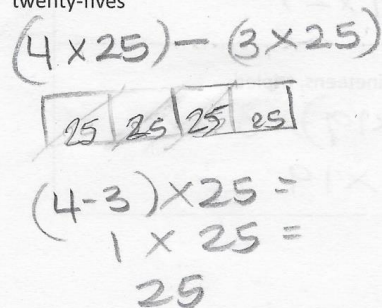 twenty-fives
(4 × 25) — (3 × 25)
25 25 25 25
(4-3) × 25 =
1 × 25 =
25